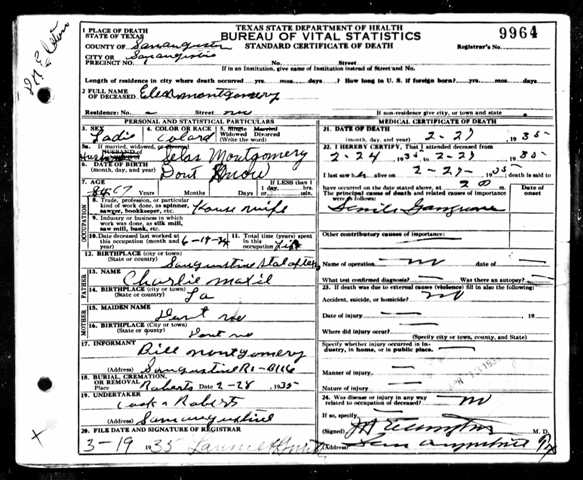 TEXAS STATE DEPARTMENT OF HEALTH
BUREAU OF VITAL STATISTICS
STANDARD CERTIFICATE OF DEATH
9964
1 PLACE OF DEATH
STATE OF TEXAS
COUNTY OF San augustin
CITY OR
PRECINCT NO. San augustin
No. Street
If in an Institution, give name of Institution instead of Street and No.
Registrar's No.
Length of residence in city where death occurred yrs. mos. days. How long in U. S. if foreign born? yrs. mos. days.
2 FULL NAME
OF DECEASED montgomery
Residence: No. Street City
If non-residence give city, or town and state.
PERSONAL AND STATISTICAL PARTICULARS
3. SEX Ladie
4. COLOR OR RACE Colard
5. Single Married
Widowed Divorced
5a. If married, widowed, or divorced
HUSBAND of
Selas Montgomery
6. DATE OF BIRTH
(month, day, and year) Dont Know
7. AGE
67 Years Months Days
IF LESS than 1 day, hrs. min.
OCCUPATION
8. Trade, profession, or particular
kind of work done, as spinner,
sawyer, bookkeeper, etc. House wife
9. Industry or business in which
work was done, as silk mill,
saw mill, bank, etc.
10. Date deceased last worked at
this occupation (month and year) 6-19-34
11. Total time (years) spent in this occupation Life
12. BIRTHPLACE (City or town)
(State or county) Sanugustine
FATHER
13. NAME
Charlie
14. BIRTHPLACE (City or town)
(State or county) La
MOTHER
15. MAIDEN NAME
Dont no
16. BIRTHPLACE (City or town)
(State or county) Dont no
17. INFORMANT
Bill montgomery
(Address) Sanugustine R1
18. BURIAL, CREMATION,
OR REMOVAL
Place Roberts Date 2-28 1935
19. UNDERTAKER
Roberts
(Address)
20. FILE DATE AND SIGNATURE OF REGISTRAR
3-19 1935
MEDICAL CERTIFICATE OF DEATH
21. DATE OF DEATH
(month, day, and year) 2-27 1935
22. I HEREBY CERTIFY, That I attended deceased from
2-24 1935 to 2-27 1935
I last saw h alive on 2-27- 1935 death is said to
have occurred on the date stated above, at m.
The principal cause of death and related causes of importance
were as follows:
Date of onset
Senile Gangrene
Other contributory causes of importance:
Name of operation no Date of
What test confirmed diagnosis? Was there an autopsy?
23. If death was due to external causes (violence) fill in also the following:
Accident, suicide, or homicide? no
Date of injury 19
Where did injury occur?
(Specify city or town, county, and State)
Specify whether injury occurred in industry, in home, or in public place.
Manner of injury
Nature of injury
24. Was disease or injury in any way
related to occupation of deceased? no
If so, specify
(Signed) M. D.
(Address) San augustine Tx